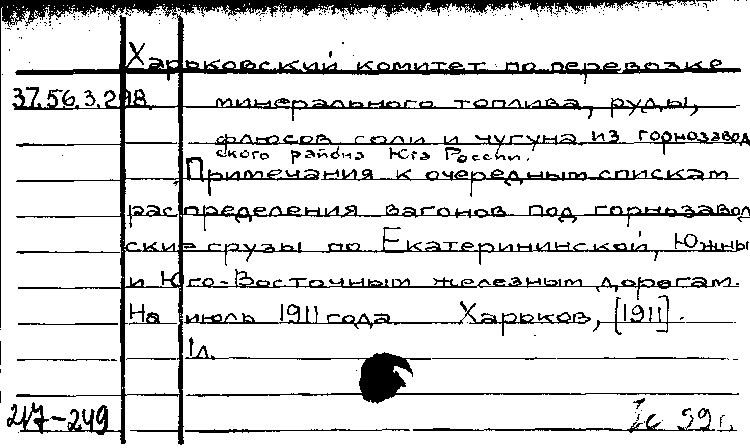 Харьковский комитет по перевозке
37.56.3.298. минерального топлива, руды,
флюсов соли и чугуна из горнозавод
ского района Юга России.
Примечания к очередным спискам
распределения вагонов под горнозавод
ские грузы по Екатерининской, Южны
и Юго-Восточным железным дорогам.
На июль 1911 года Харьков, [1911].
1л.
217-249 99 г.